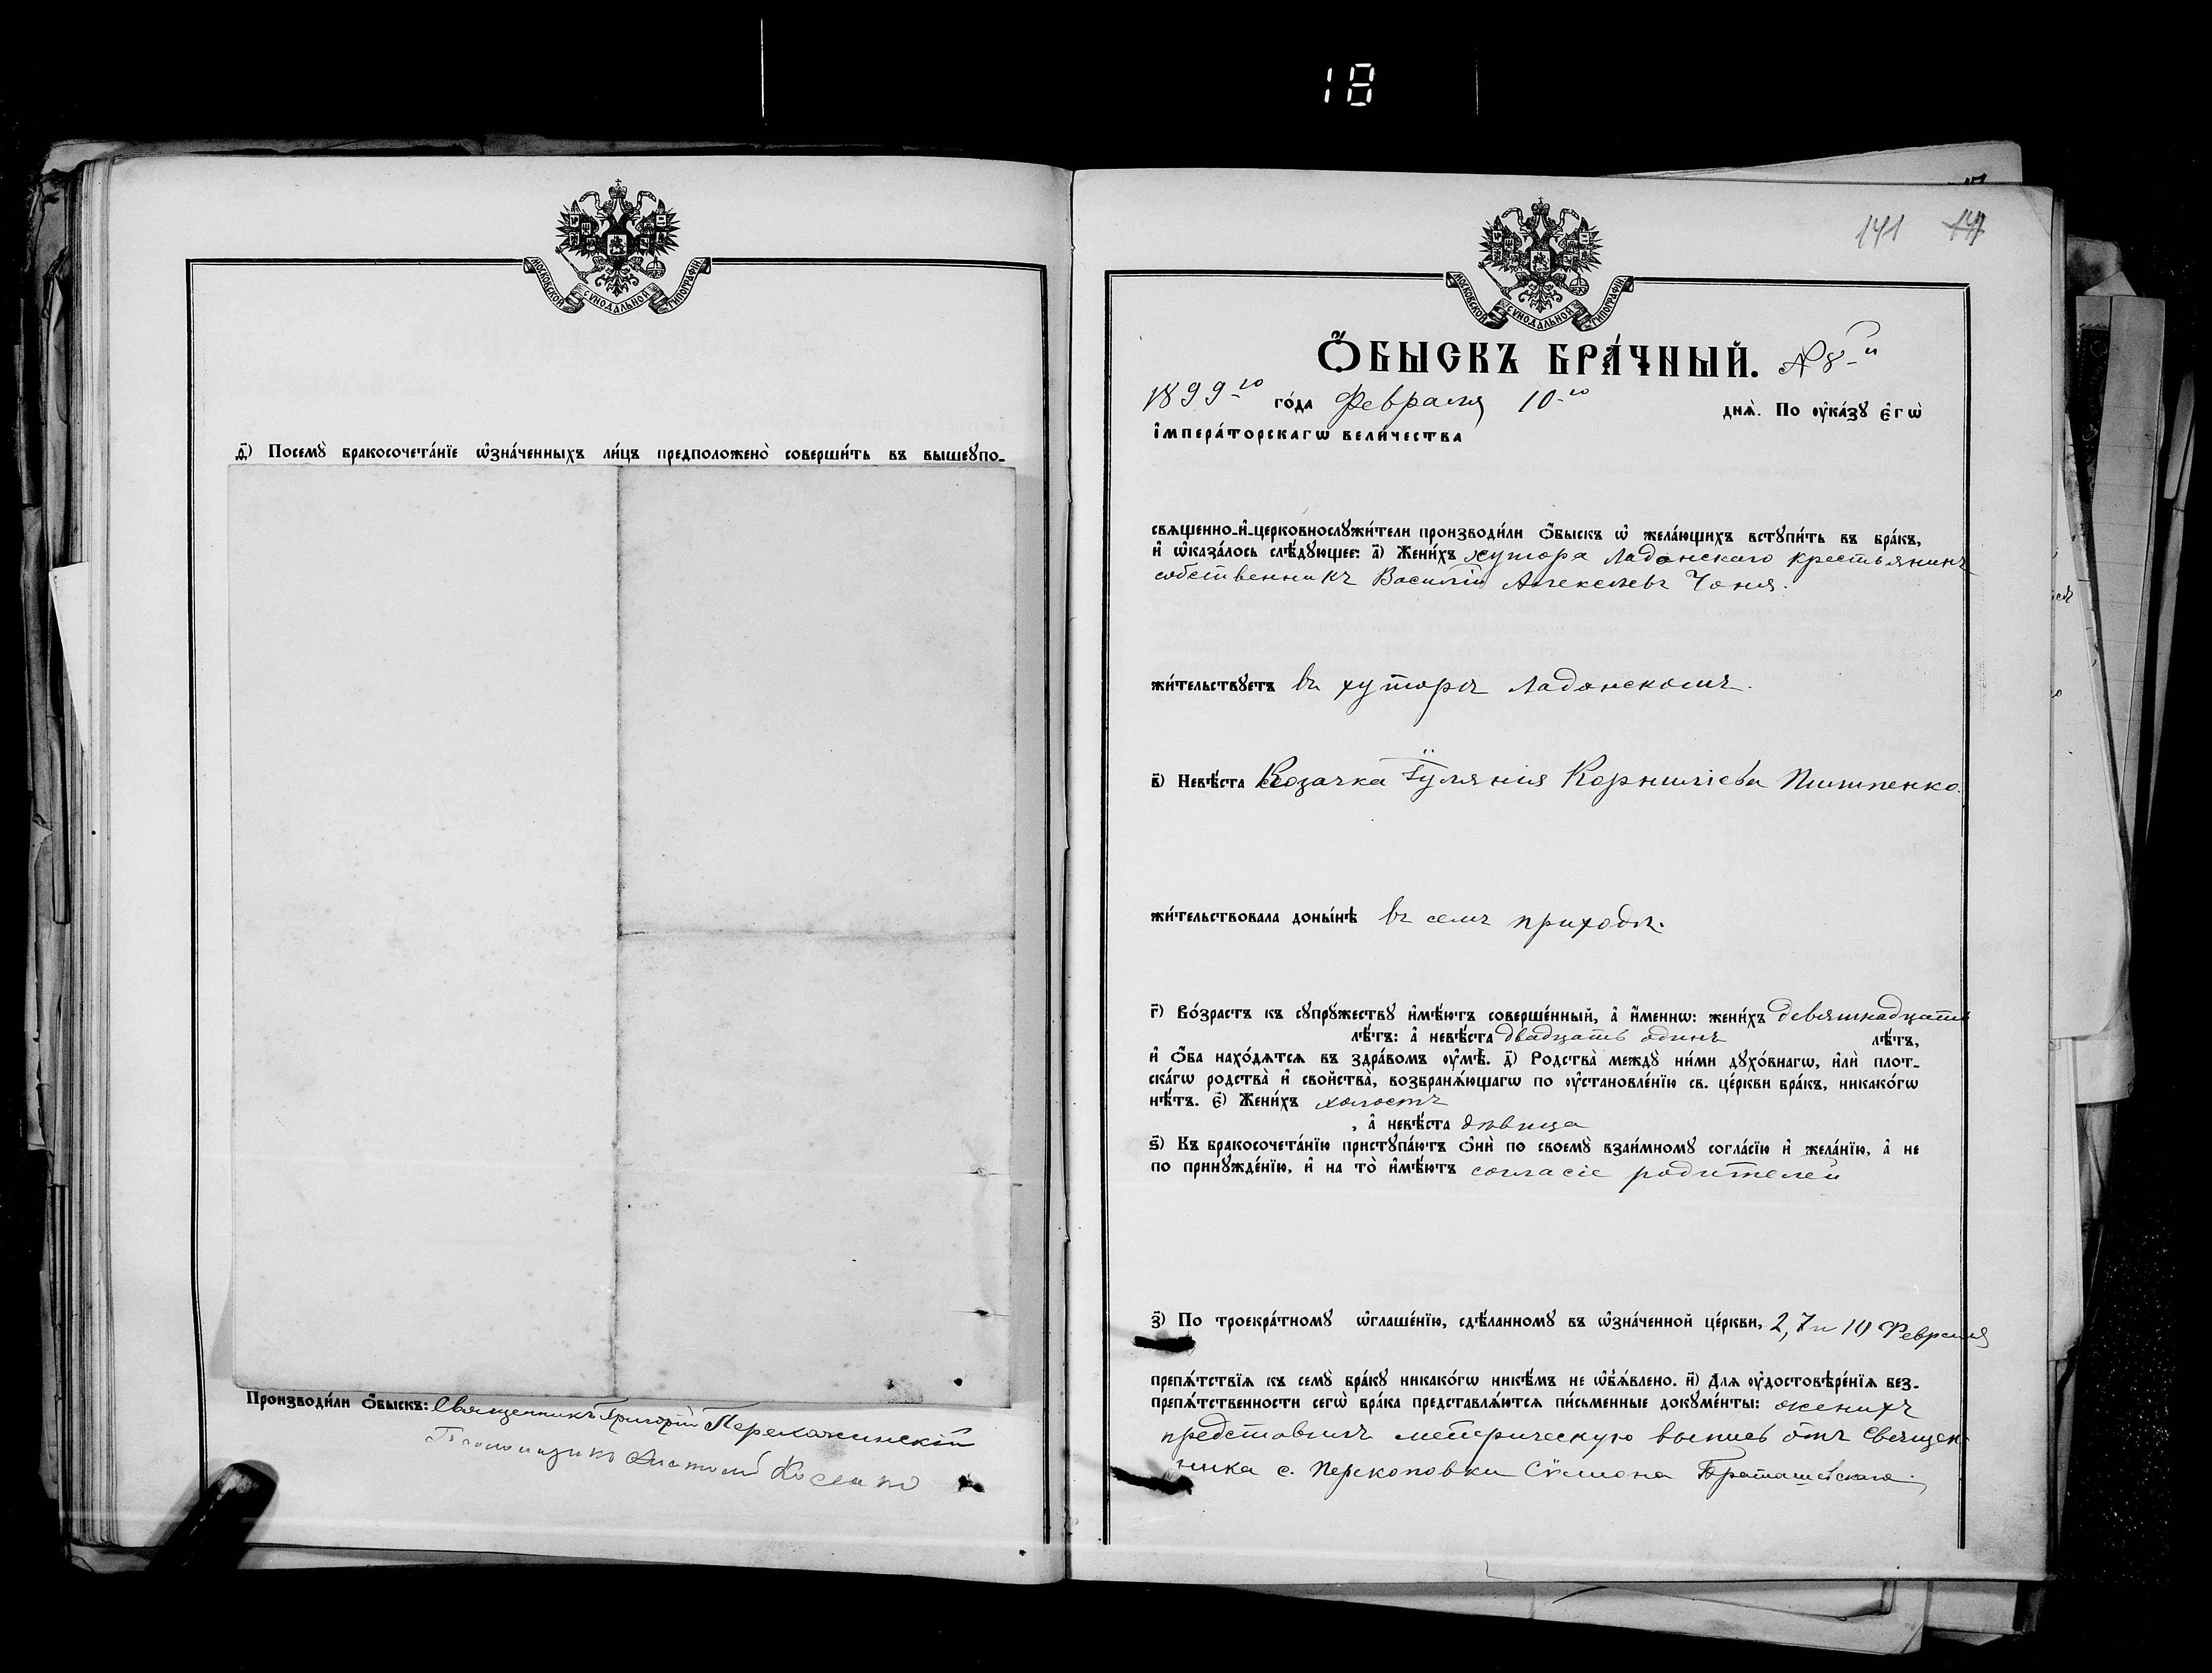 18
МОСКОВСКОЙ СѴНОДАЛЬНОЙ ТИПОГРАФІИ.
д҃) Посемꙋ̀ бракосочета́нїе ѡ҆зна́ченныхъ ли́цъ предположено̀ соверши́ть въ вышеꙋпо-
Производи́ли Ѻ҆́быскъ: Священникъ Григорій Перехожинскій
Псаломщикъ Анатолій
141
МОСКОВСКОЙ СѴНОДАЛЬНОЙ ТИПОГРАФІИ.
Ѻ҆́БЫСКЪ БРА́ЧНЫЙ. № 8-й
1899-го го́да Февраля 10-го днѧ̀. По ᲂу҆ка́зꙋ є҆гѡ̀
і҆мпера́торскагѡ вели́чества
священно-и҆-церковнослꙋжи́тели производи́ли ѻ҆́быскъ ѡ҆ жела́ющихъ встꙋпи́ть въ бра́къ,
и҆ ѡ҆каза́лось слѣ́дꙋющее: а҃) Жени́хъ хутора Ладанскаго крестьянинъ
собственникъ Василій Алексѣевъ Чоня.
жи́тельствꙋетъ въ хуторѣ Ладанскомъ.
в҃) Невѣ́ста Козачка Іуліянія Корниліева Пилипенко.
жи́тельствовала доны́нѣ въ семъ приходѣ.
г҃) Во́зрастъ къ сꙋпрꙋ́жествꙋ и҆мѣ́ютъ соверше́нный, а҆ и҆́меннѡ: жени́хъ девятнадцать
лѣ́тъ: а҆ невѣ́ста двадцать одинъ лѣ́тъ,
и҆ ѻ҆́ба нахо́дѧтсѧ въ здра́вомъ ᲂу҆мѣ̀. д҃) Родства̀ междꙋ̀ ни́ми дꙋхо́внагѡ, и҆лѝ плот-
ска́гѡ родства̀ и҆ свойства̀, возбранѧ́ющагѡ по ᲂу҆становле́нїю св. це́ркви бра́къ, никако́гѡ
нѣ́тъ. є҃) Жени́хъ холостъ
, а҆ невѣ́ста дѣвица
ѕ҃) Къ бракосочета́нїю пристꙋпа́ютъ ѻ҆нѝ по своемꙋ̀ взаи́мномꙋ согла́сїю и҆ жела́нїю, а҆ не
по принꙋжде́нїю, и҆ на то̀ и҆мѣ́ютъ согласіе родителей
з҃) По троекра́тномꙋ ѡ҆глаше́нїю, сдѣ́ланномꙋ въ ѡ҆зна́ченной це́ркви, 2, 7 и 10 Февраля
препѧ́тствїѧ къ семꙋ̀ бра́кꙋ никако́гѡ никѣ́мъ не ѡ҆б̾ѧ́влено. и҃) Для ᲂу҆достовѣре́нїѧ без-
препѧ́тственности сегѡ̀ бра́ка представлѧ́ютсѧ пи́сьменные докꙋме́нты: женихъ
представилъ метрическую выпись отъ Священ-
ника с. Перекоповки Сѵмеона